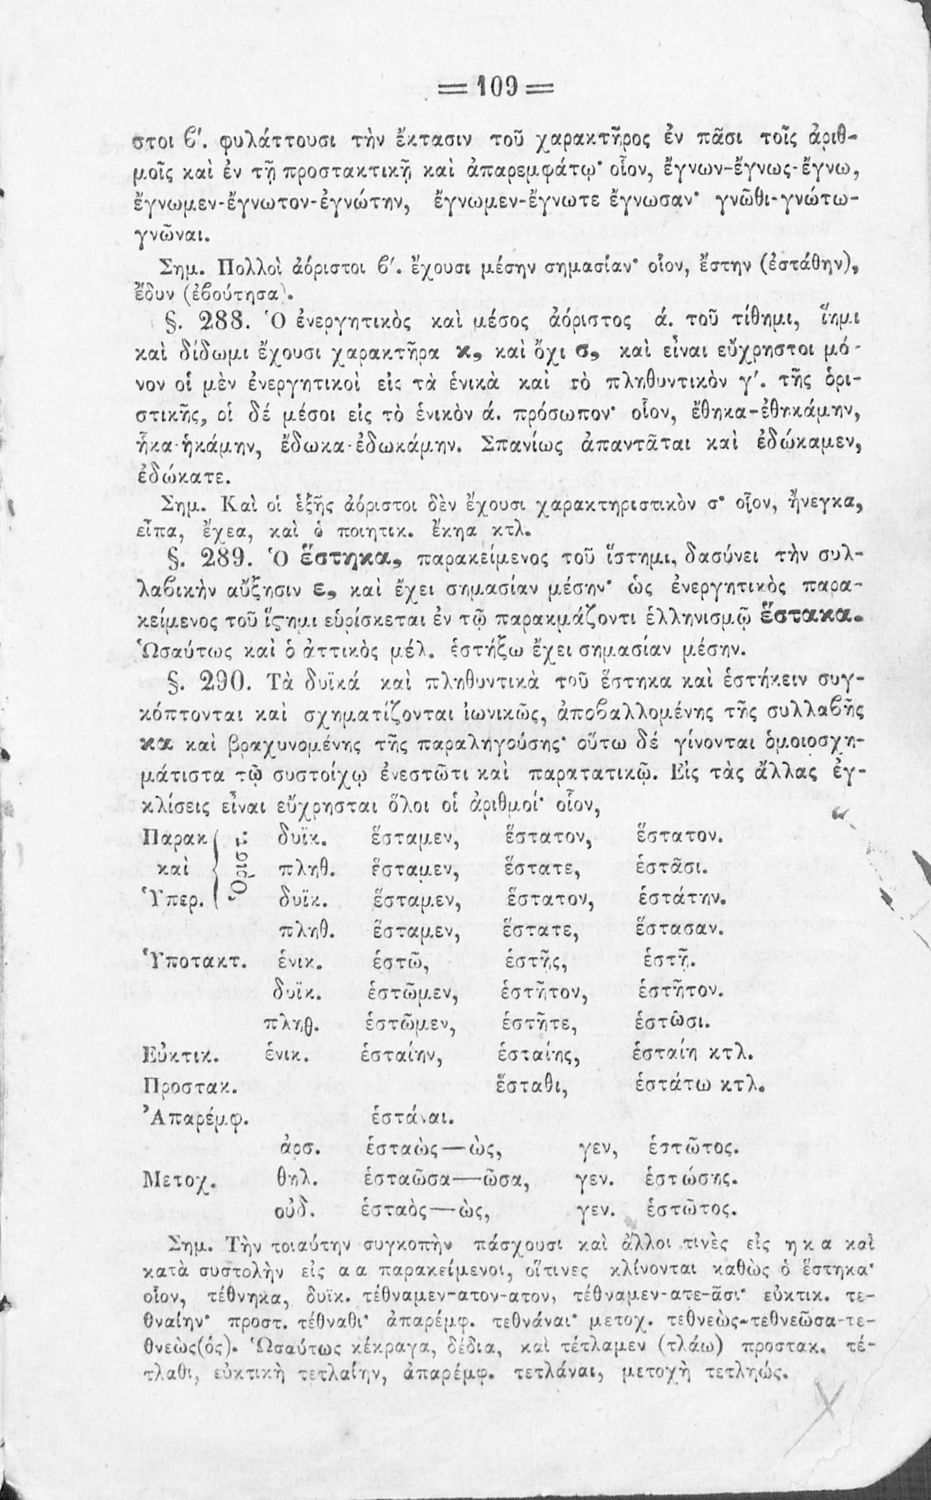 = 109 =
στοι β'. φυλάττουσι τὴν ἔκτασιν τοῦ χαρακτῆρος ἐν πᾶσι τοῖς ἀριθ-
μοῖς καὶ ἐν τῇ προστακτικῇ καὶ ἀπαρεμφάτῳ· οἷον, ἔγνων-ἔγνως-ἔγνω,
ἔγνωμεν-ἔγνωτον-ἐγνώτην, ἔγνωμεν-ἔγνωτε ἔγνωσαν· γνῶθι-γνώτω-
γνῶναι.
Σημ. Πολλοὶ ἀόριστοι β'. ἔχουσι μέσην σημασίαν· οἷον, ἔστην (ἐστάθην),
ἔδυν (ἐβούτησα).
§. 288. Ὁ ἐνεργητικὸς καὶ μέσος ἀόριστος ά. τοῦ τίθημι, ἵημι
καὶ δίδωμι ἔχουσι χαρακτῆρα κ, καὶ ὄχι σ, καὶ εἶναι εὔχρηστοι μό-
νον οἱ μὲν ἐνεργητικοὶ εἰς τὰ ἑνικὰ καὶ τὸ πληθυντικὸν γ'. τῆς ὁρι-
στικῆς, οἱ δέ μέσοι εἰς τὸ ἑνικὸν ά. πρόσωπον· οἷον, ἔθηκα-ἐθηκάμην,
ἧκα-ἡκάμην, ἔδωκα-ἐδωκάμην. Σπανίως ἀπαντᾶται καὶ ἐδώκαμεν,
ἐδώκατε.
Σημ. Καὶ οἱ ἑξῆς ἀόριστοι δὲν ἔχουσι χαρακτηριστικὸν σ· οἷον, ἤνεγκα,
εἶπα, ἔχεα, καὶ ὁ ποιητικ. ἔκηα κτλ.
§. 289. Ὁ ἕστηκα, παρακείμενος τοῦ ἵστημι, δασύνει τὴν συλ-
λαβικὴν αὔξησιν ε, καὶ ἔχει σημασίαν μέσην· ὡς ἐνεργητικὸς παρα-
κείμενος τοῦ ἵστημι εὑρίσκεται ἐν τῷ παρακμάζοντι ἑλληνισμῷ ἕστακα.
Ὡσαύτως καὶ ὁ ἀττικὸς μέλ. ἑστήξω ἔχει σημασίαν μέσην.
§. 290. Τὰ δυϊκά καὶ πληθυντικὰ τοῦ ἕστηκα καὶ ἑστήκειν συγ-
κόπτονται καὶ σχηματίζονται ἰωνικῶς, ἀποβαλλομένης τῆς συλλαβῆς
κα καὶ βραχυνομένης τῆς παραληγούσης· οὕτω δέ γίνονται ὁμοιοσχη-
μάτιστα τῷ συστοίχῳ ἐνεστῶτι καὶ παρατατικῷ. Εἰς τὰς ἄλλας ἐγ-
κλίσεις εἶναι εὔχρησται ὅλοι οἱ ἀριθμοί· οἷον,
Παρακ δυϊκ. ἕσταμεν, ἕστατον, ἕστατον.
καὶ Ὁριστ: πληθ. ἕσταμεν, ἕστατε, ἑστᾶσι.
Ὑπερ. δυϊκ. ἕσταμεν, ἕστατον, ἑστάτην.
πληθ. ἕσταμεν, ἕστατε, ἕστασαν.
Ὑποτακτ. ἑνικ. ἑστῶ, ἑστῇς, ἑστῇ.
δυϊκ. ἑστῶμεν, ἑστῆτον, ἑστῆτον.
πληθ. ἑστῶμεν, ἑστῆτε, ἑστῶσι.
Εὐκτικ. ἑνικ. ἑσταίην, ἑσταίης, ἑσταίη κτλ.
Προστακ. ἕσταθι, ἑστάτω κτλ.
Ἀπαρέμφ. ἑστάναι.
ἀρσ. ἑσταὼς—ὼς, γεν, ἑστῶτος.
Μετοχ. θηλ. ἑσταῶσα—ῶσα, γεν. ἑστώσης.
οὐδ. ἑσταὸς—ὼς, γεν. ἑστῶτος.
Σημ. Τὴν τοιαύτην συγκοπὴν πάσχουσι καὶ ἄλλοι τινὲς εἰς ηκα καὶ
κατὰ συστολὴν εἰς αα παρακείμενοι, οἵτινες κλίνονται καθὼς ὁ ἕστηκα·
οἷον, τέθνηκα, δυϊκ. τέθναμεν-ατον-ατον, τέθναμεν-ατε-ᾶσι· εὐκτικ. τε-
θναίην· προστ. τέθναθι· ἀπαρέμφ. τεθνάναι· μετοχ. τεθνεὼς-τεθνεῶσα-τε-
θνεὼς(ός). Ὡσαύτως κέκραγα, δέδια, καὶ τέτλαμεν (τλάω) προστακ. τέ-
τλαθι, εὐκτικὴ τετλαίην, ἀπαρέμφ. τετλάναι, μετοχὴ τετληώς.